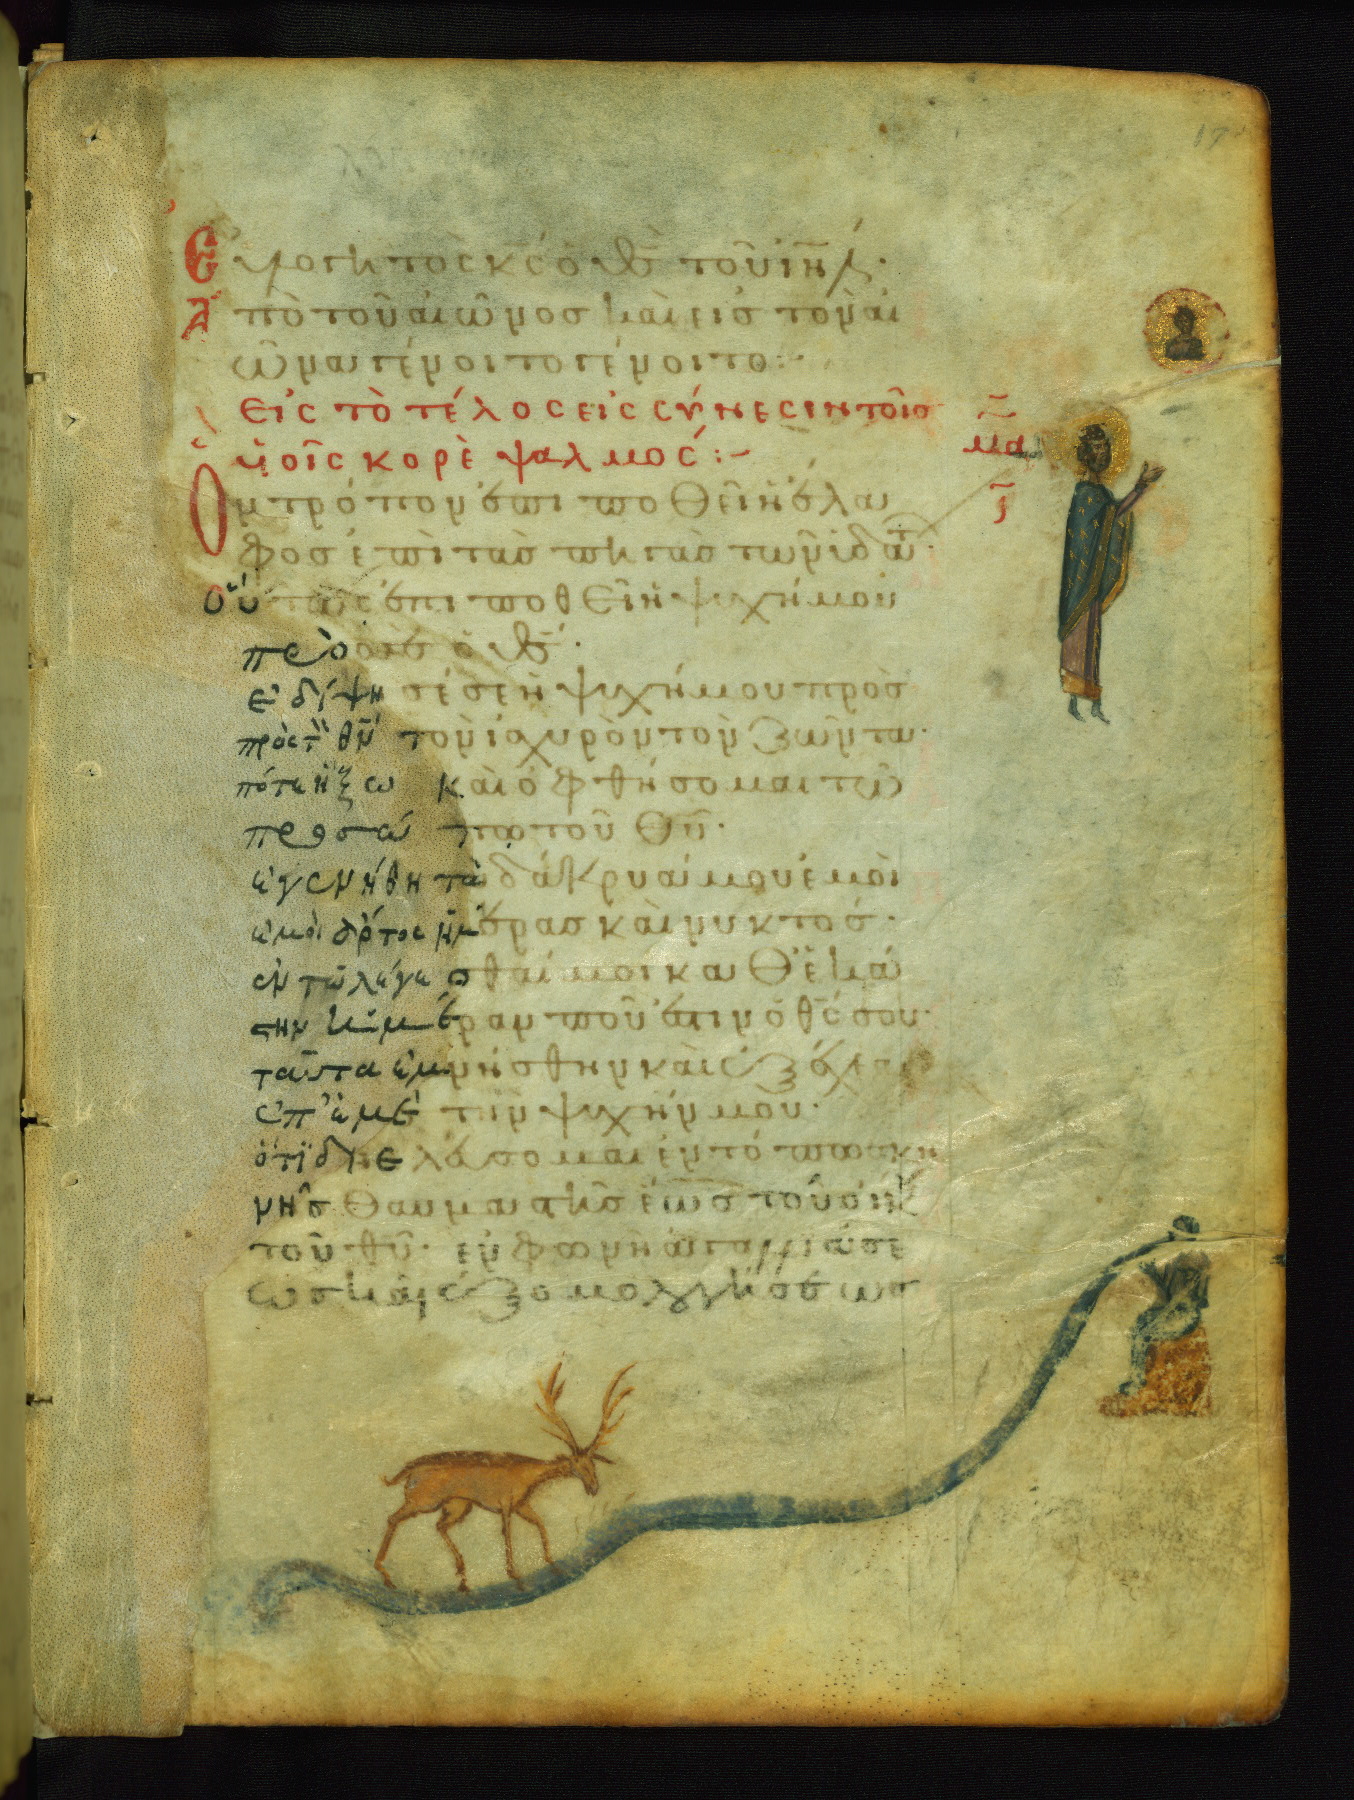 17
Εὐλογητὸς κ̅ς ὁ θ̅ς τοῦ ι̅η̅λ·
Ἀπὸ τοῦ αἰῶνος καὶ εἰς τὸν αἰ
ῶνα γένοιτο γένοιτο:~
Εἰς τὸ τέλος εἰς σύνεσιν τοῖς
υἱοῖς κορὲ ψαλμός:~
μα
Ὃν τρόπον ἐπιποθεῖ ἡ ἔλα
φος ἐπὶ τὰς πηγὰς τῶν ὑδάτ·
οὕτως ἐπιποθεῖ ἡ ψυχή μου
πρὸσ σὲ ὁ θ̅ς·
ἐδίψησέ σε ἡ ψυχή μου πρὸς
πρὸς τ̅ θ̅ν τὸν ἰσχυρὸν τὸν ζῶντα·
πότε ἥξω καὶ ὀφθήσομαι τῶ
προσώπω τοῦ θ̅υ·
ἐγενήθη τὰ δάκρυά μου ἐμοὶ
ἐμοὶ ἄρτος ἡμέρας καὶ νυκτός·
ἐν τῶ λέγεσθαί μοι καθ' ἑκά
στην ἡμέραν ποῦ ἐστιν ὁ θ̅ς σου·
ταῦτα ἐμνήσθην καὶ ἐξέχεα
ἐπ' ἐμὲ τὴν ψυχήν μου·
ὅτι διελεύσομαι ἐν τόπω σκη
νῆς θαυμαστῆς ἕως τοῦ οἴκ
τοῦ θ̅υ· ἐν φωνῆ ἀγαλλιάσε
ως καὶ ἐξομολογήσεως